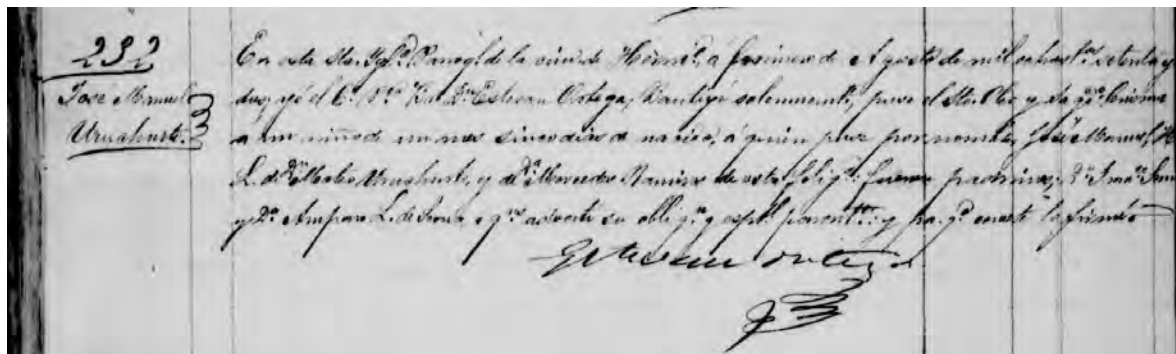 232
Jose Manuel
Uruchurtu.
En esta Sta. Ygl.a Parroql. de la ciud. de Hermo., á primero de Agosto de mil ochoct.os setenta y
dos, yó el C. Pro. Dn. Estevan Ortega, Bautisé solemnemente, puse el Sto. Oleo y Sagdo. Crisma
a un niño de un mes cinco dias de nacido, á quien puse por nombre José Manuel,
L. de Dn. Mateo Uruchurtu, y de Da. Mercedes Ramires de esta feligs. fueron padrinos, Dn.
y Da. Amparo L. de Serna a qns. advertí su obligon. y espl. parentco.: y pa. qe. conste lo firmé
Estevan Ortega